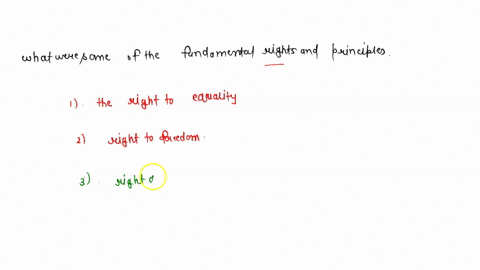 what were some of the fundamental rights and principles.
1). the right to equality
2) right to freedom.
3). right o